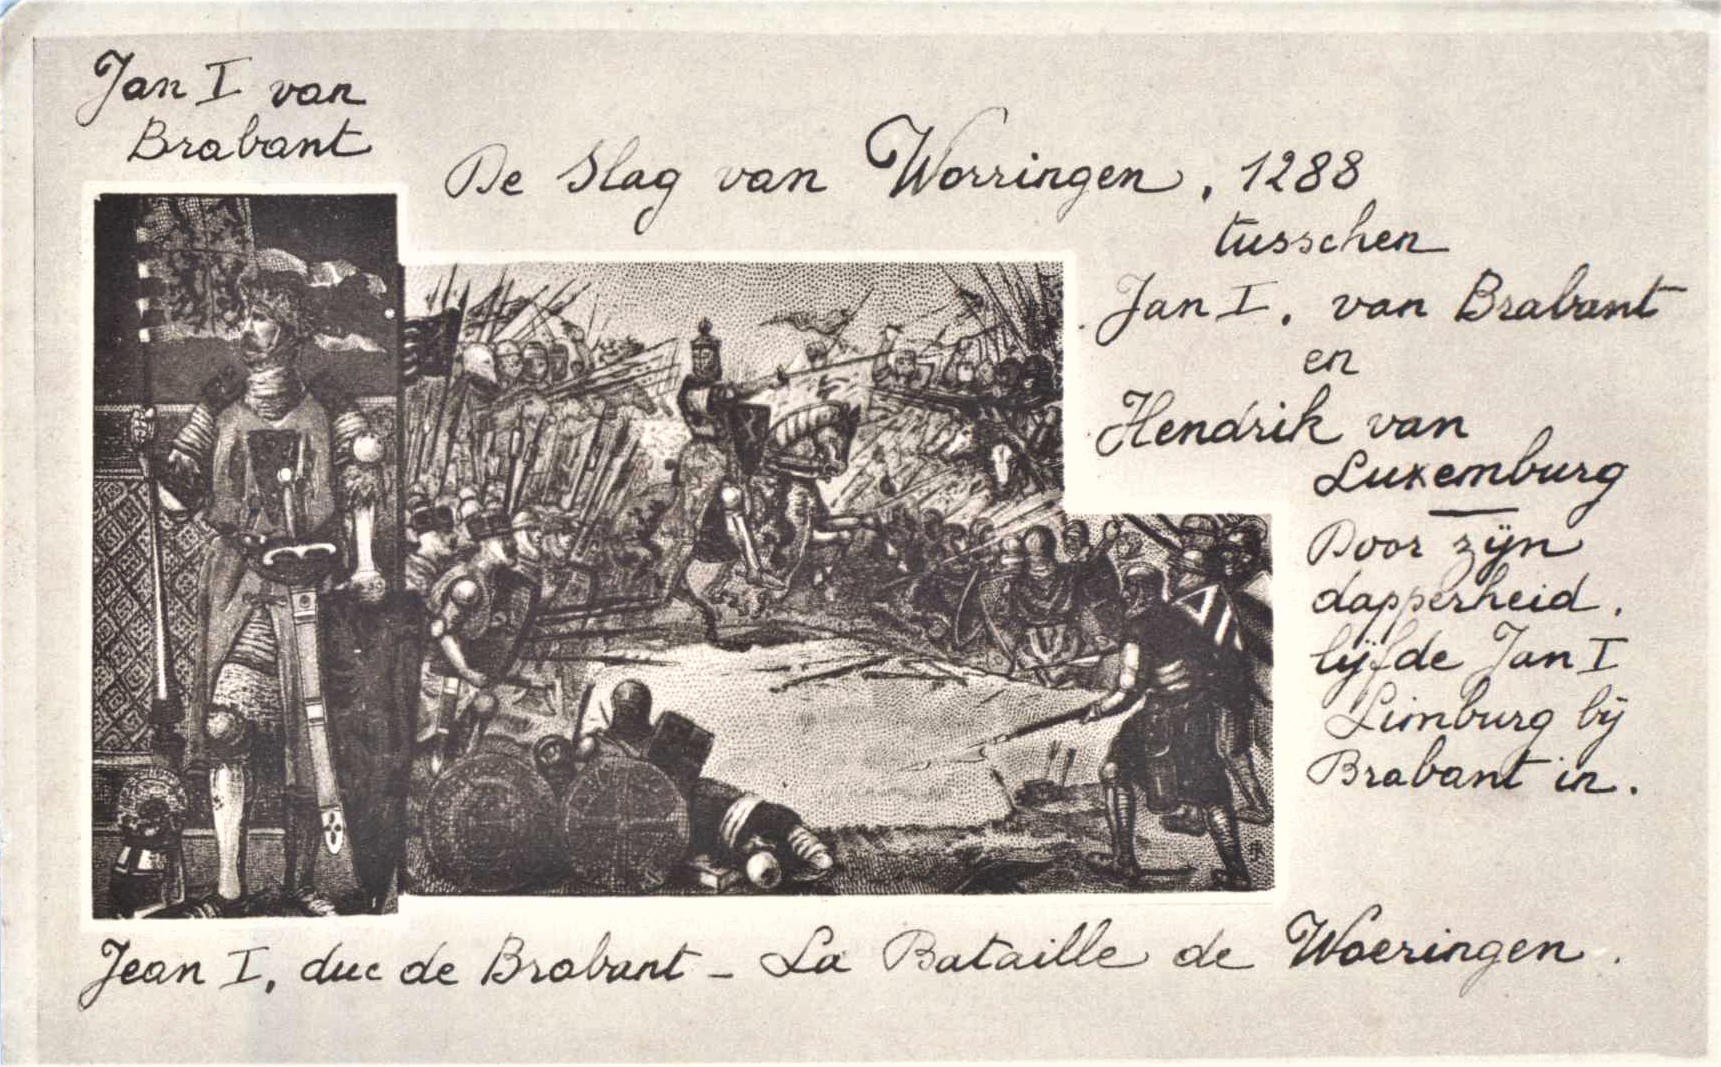 Jan I van
Brabant
De Slag van Worringen, 1288
tusschen
Jan I. van Brabant
en
Hendrik van
Luxemburg
Door zijn
dapperheid.
lijfde Jan I
Limburg bij
Brabant in.
Jean I, duc de Brabant - La Bataille de Woeringen.